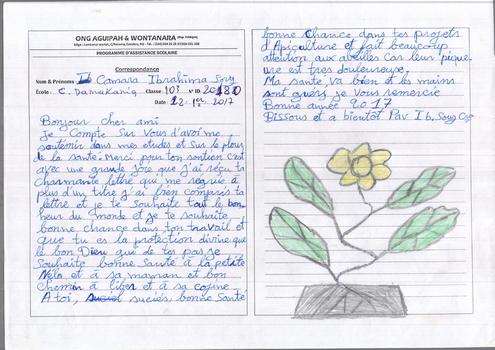 ONG AGUIPAH & WONTANARA
PROGRAMME D'ASSISTANCE SCOLAIRE
Correspondance
Nom & Prénoms : Camara Ibrahima Sory
École : C. Damakania Classe 10è N° ID 20180
Date : 12. 1er. 2017
Bonjour cher ami
Je Compte Sur Vous d'avoi me
soutenir dans mes etudes et Sur le plour
de la santé. Merci pour ton soutien c'est
avec une grande joie que j'ai reçu ta
charmante lettre que me réjouie à
plus d'un titre j'ai bien compris ta
lettre et je te Souhaite tout le bon
heur du monde et je te souhaite
bonne chance dans ton travail et
que tu es la protection divine que
le bon Dieu qui de tes pas je
Souhaite bonne Santé à la petite
Nela et à sa maman et bon
chemin à liber et à sa copine
A toi, suciés, bonne Santé
bonne Chance dans tes projets
d'Apiculture et fait beaucoup
attention aux abeilles car leur piqu-
ure est très douleureuse,
Ma santé va bien et les mains
sont guéris je vous remercie
Bonne année 2017
Bissous et a bientôt Par Ib, Sory